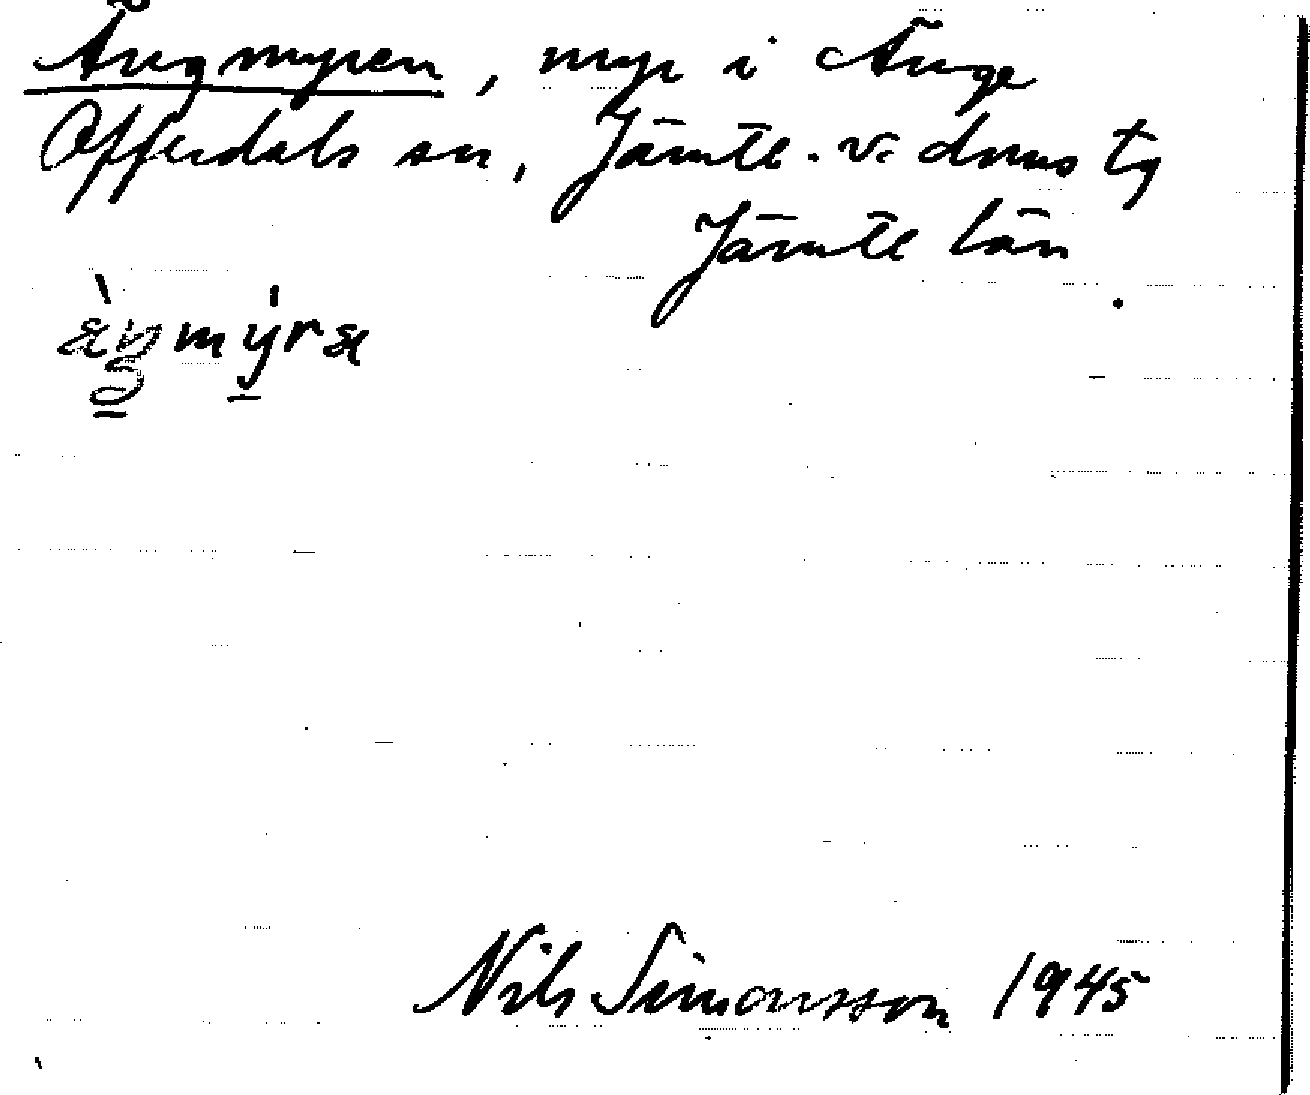 Ängmyren, myr i Änge
Offerdals sn, Jämtl. v. doms tg
Jämtl län
Nils Simonsson 1945